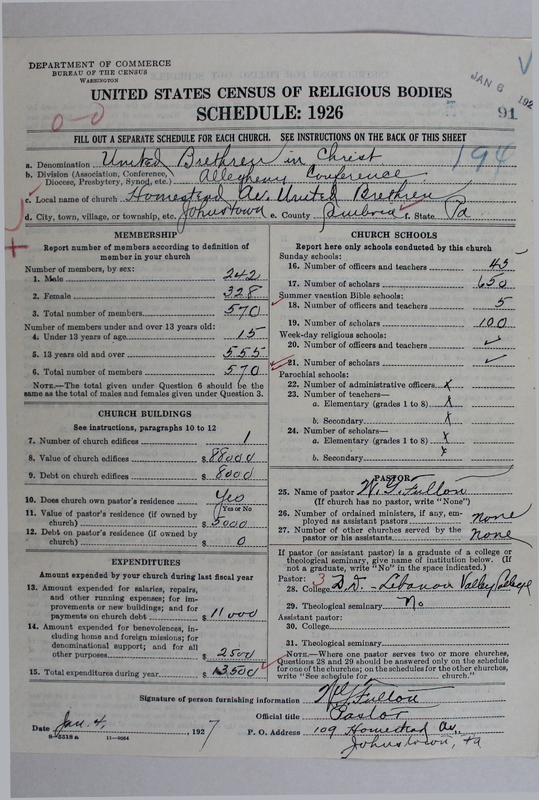 DEPARTMENT OF COMMERCE
BUREAU OF THE CENSUS
WASHINGTON
JAN 6 192
UNITED STATES CENSUS OF RELIGIOUS BODIES
SCHEDULE: 1926
91
0-0
FILL OUT A SEPARATE SCHEDULE FOR EACH CHURCH. SEE INSTRUCTIONS ON THE BACK OF THIS SHEET
194
a. Denomination United Brethren in Christ
b. Division (Association, Conference, Diocese, Presbytery, Synod, etc.) Allegheny Conference
c. Local name of church Homestead Av. United Brethren
d. City, town, village, or township, etc. Johnstown e. County Cambria f. State Pa
MEMBERSHIP
Report number of members according to definition of
member in your church
Number of members, by sex:
1. Male 242
2. Female 328
3. Total number of members 570
Number of members under and over 13 years old:
4. Under 13 years of age 15
5. 13 years old and over 555
6. Total number of members 570
NOTE.—The total given under Question 6 should be the
same as the total of males and females given under Question 3.
CHURCH BUILDINGS
See instructions, paragraphs 10 to 12
7. Number of church edifices 1
8. Value of church edifices $ 88000
9. Debt on church edifices $ 8000
10. Does church own pastor's residence Yes
Yes or No
11. Value of pastor's residence (if owned by
church) $ 5000
12. Debt on pastor's residence (if owned by
church) $ 0
EXPENDITURES
Amount expended by your church during last fiscal year
13. Amount expended for salaries, repairs,
and other running expenses; for im-
provements or new buildings; and for
payments on church debt $ 11000
14. Amount expended for benevolences, in-
cluding home and foreign missions; for
denominational support; and for all
other purposes $ 2500
15. Total expenditures during year $ 13500
CHURCH SCHOOLS
Report here only schools conducted by this church
Sunday schools:
16. Number of officers and teachers 45
17. Number of scholars 650
Summer vacation Bible schools:
18. Number of officers and teachers 5
19. Number of scholars 100
Week-day religious schools:
20. Number of officers and teachers ✓
21. Number of scholars ✓
Parochial schools:
22. Number of administrative officers X
23. Number of teachers—
a. Elementary (grades 1 to 8) X
b. Secondary X
24. Number of scholars—
a. Elementary (grades 1 to 8) X
b. Secondary
PASTOR
25. Name of pastor W. G. Fulton
(If church has no pastor, write "None")
26. Number of ordained ministers, if any, em-
ployed as assistant pastors none
27. Number of other churches served by the
pastor or his assistants none
If pastor (or assistant pastor) is a graduate of a college or
theological seminary, give name of institution below. (If
not a graduate, write "No" in the space indicated.)
Pastor:
28. College 3 D.D. - Lebanon Valley College
29. Theological seminary No
Assistant pastor:
30. College
31. Theological seminary
NOTE.—Where one pastor serves two or more churches,
Questions 28 and 29 should be answered only on the schedule
for one of the churches; on the schedules for the other churches,
write "See schedule for church."
Signature of person furnishing information W G Fulton
Official title Pastor
Date Jan. 4, 1927 P. O. Address 109 Homestead Av,
8-5518a 11-9064
Johnstown, Pa